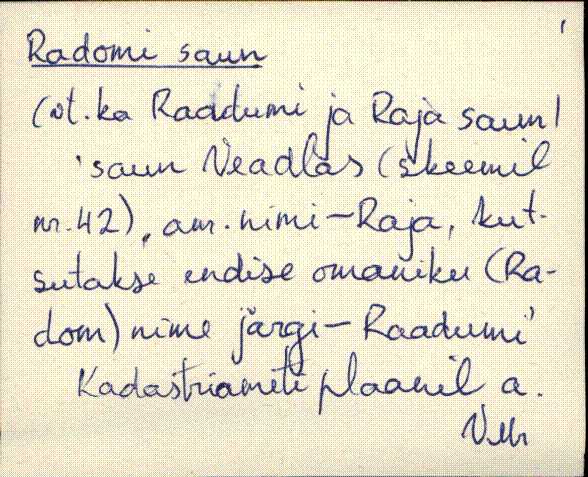 Radomi saun
(vt. ka Raadumi ja Raja saun)
'saun Neadlas (skeemil
nr. 42), am. nimi - Raja, kut-
sutakse endise omaniku (Ra-
dom) nime järgi - Raadumi'
Kadastriameti plaanil a.